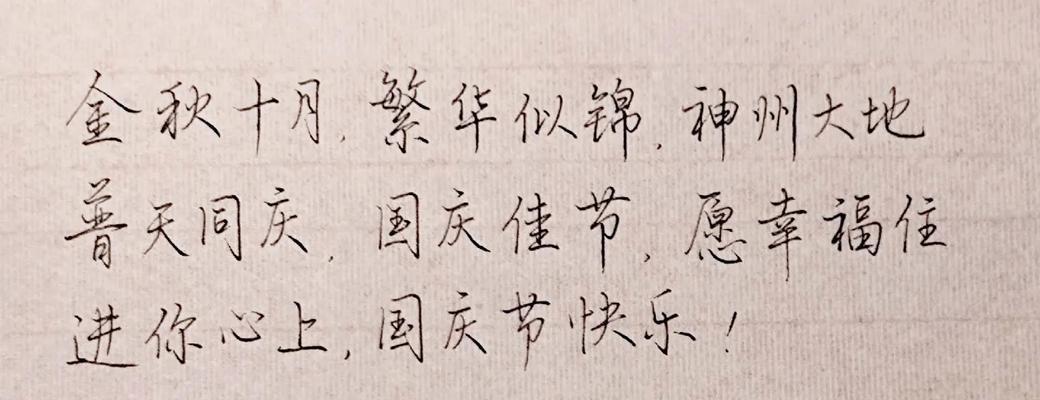 金秋十月,繁华似锦,神州大地
普天同庆,国庆佳节,愿幸福住
进你心上,国庆节快乐!